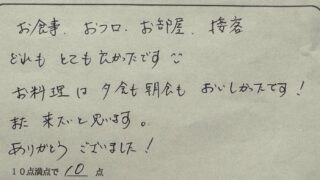 お食事、おフロ、お部屋、接客
どれも とても良かったです
お料理は夕食も朝食もおいしかったです!
また来たいと思います。
ありがとうございました!
10点満点で 10 点